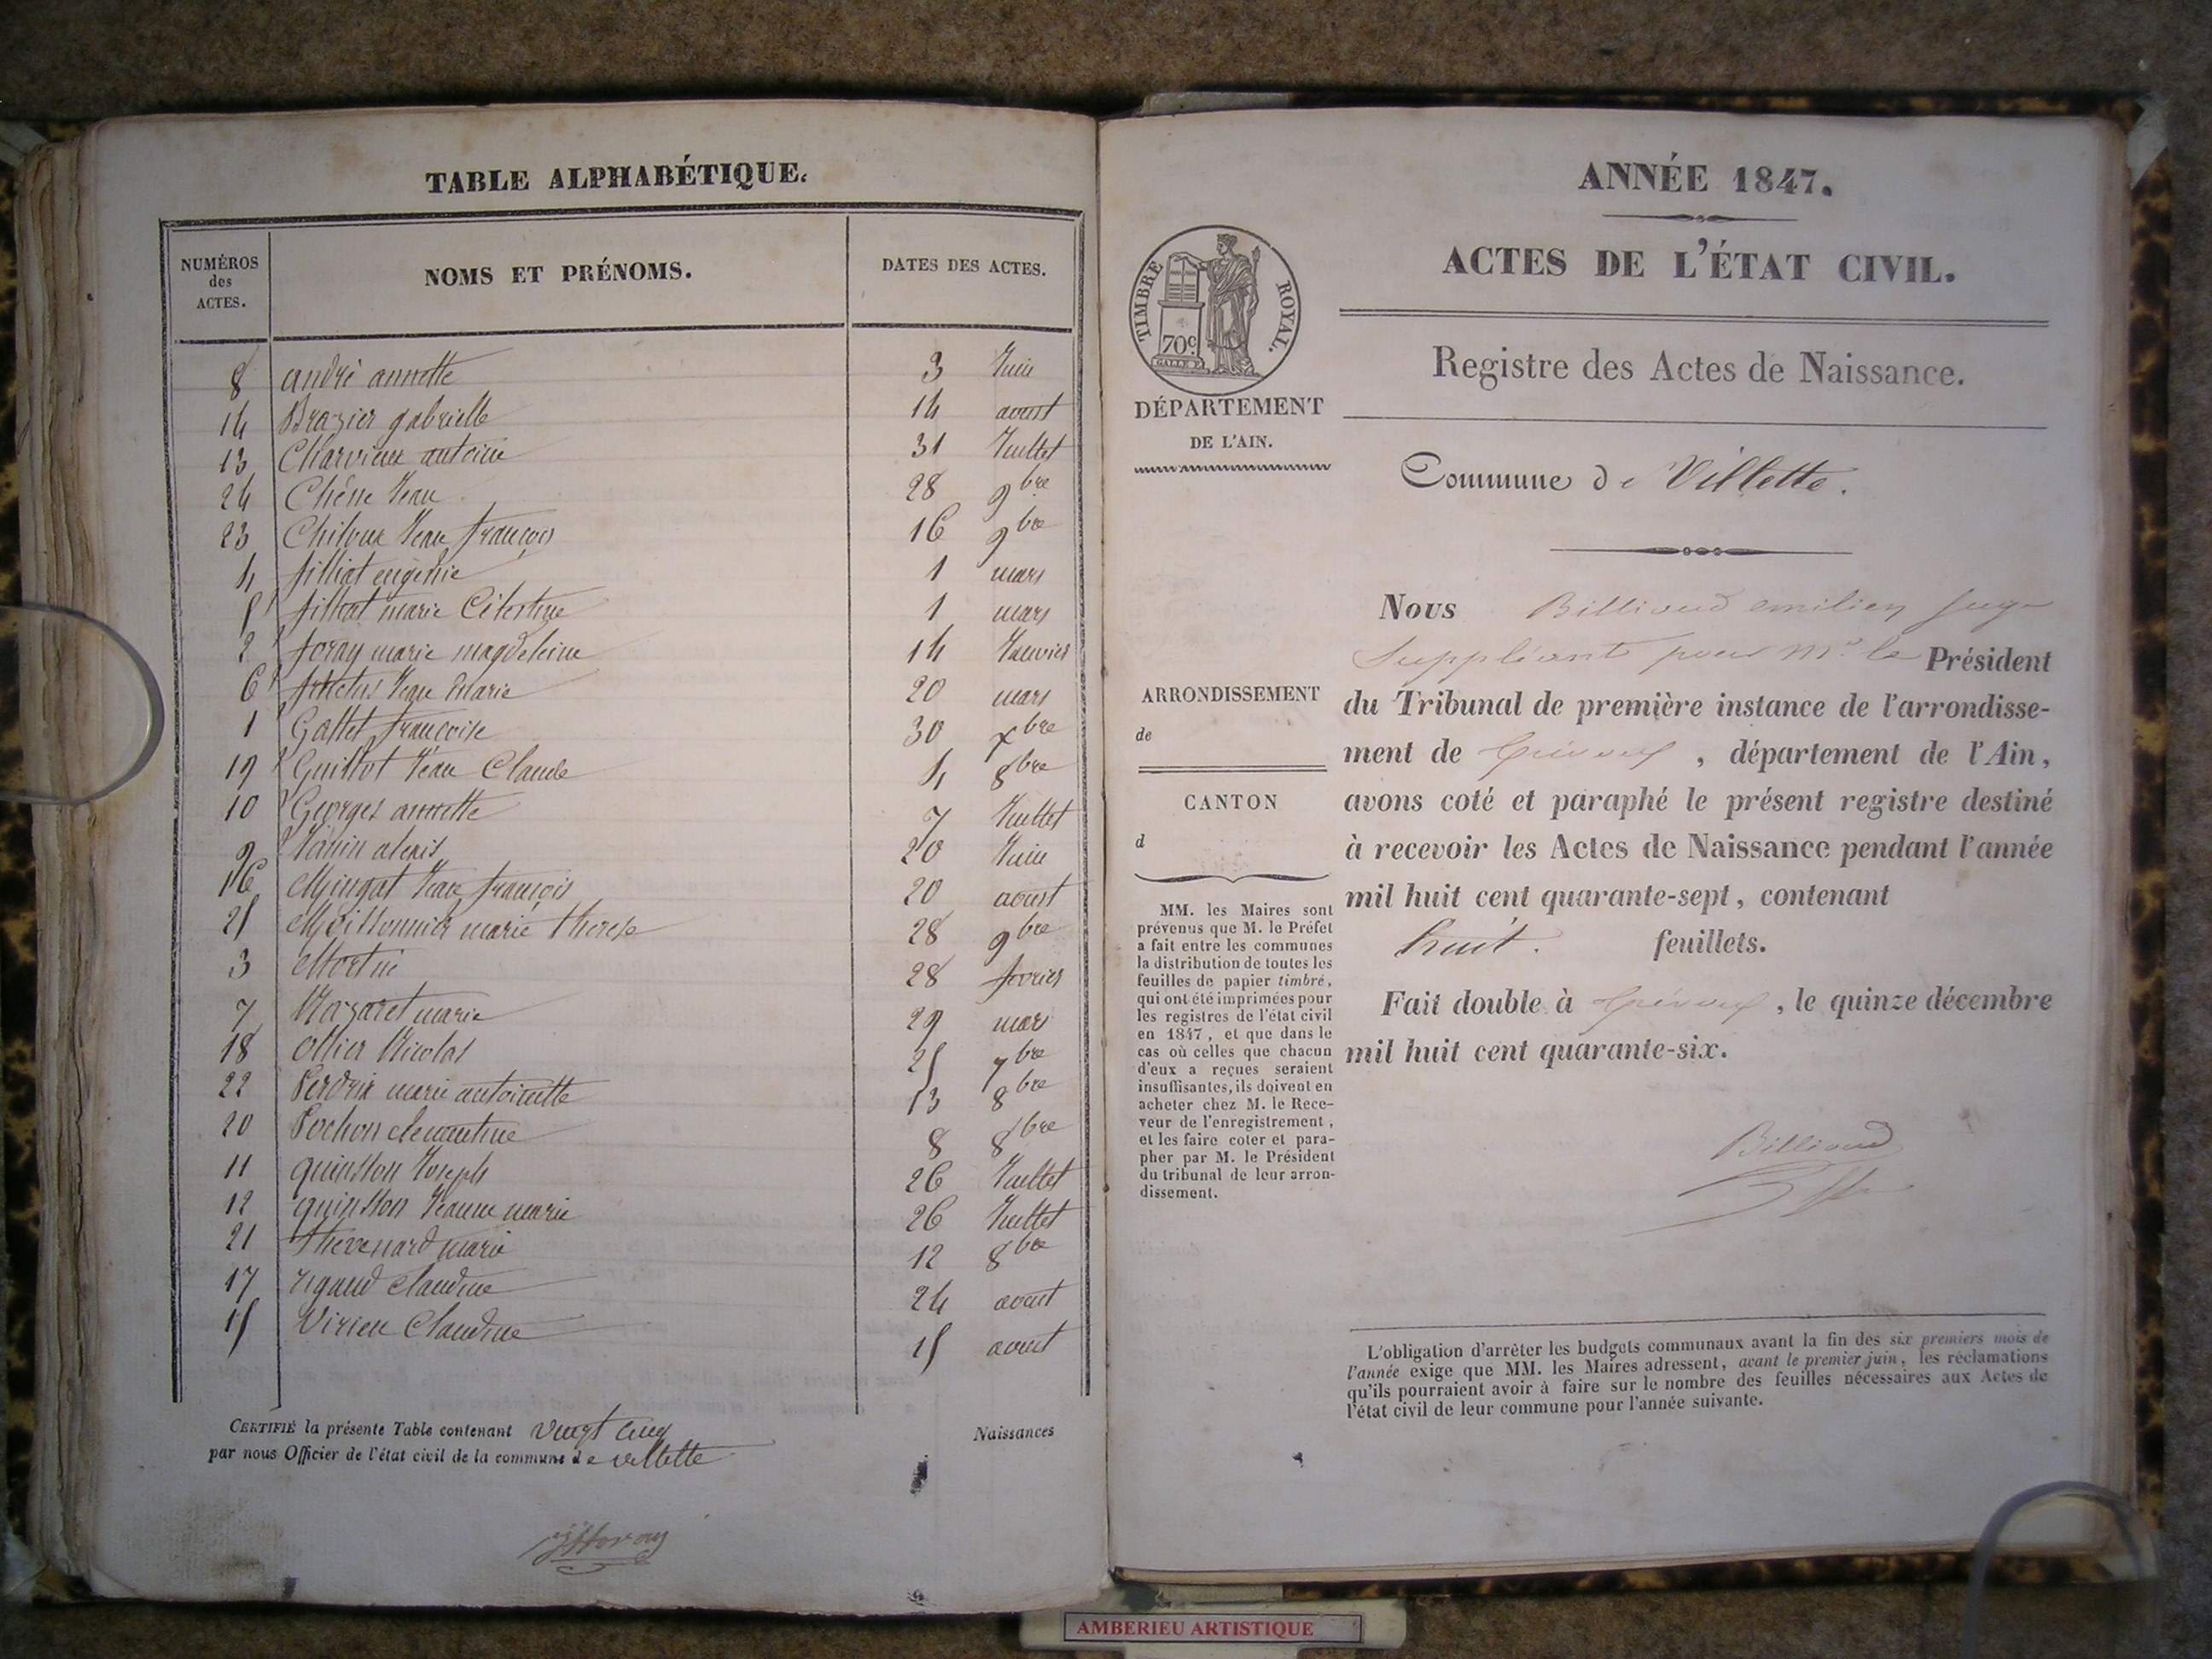 TABLE ALPHABÉTIQUE.
NUMÉROS
des
ACTES.
NOMS ET PRÉNOMS.
DATES DES ACTES.
8 andré annette 3 Juin
14 Brazier gabrielle 14 aoust
13 Charvieux antoine 31 Juillet
24 Chêne Jean 28 9bre
23 Jean françois 16 9bre
4 filliat eugénie 1 mars
5 filliat marie Célestine 1 mars
2 foray marie magdeleine 14 Janvier
6 Jean Marie 20 mars
1 Gallet françoise 30 xbre
19 Guillot Jean Claude 4 8bre
10 Georges annette 7 Juillet
9 Janin alexis 20 Juin
16 Mingat Jean françois 20 aoust
25 Moissonnier marie therese 28 9bre
3 Mort né 28 fevrier
7 Nazaret marie 29 mars
18 ollier Nicolas 25 7bre
22 Perdrix marie antoinette 13 8bre
20 Pochon clementine 8 8bre
11 quinson Joseph 26 Juillet
12 quinson Jeanne marie 26 Juillet
21 thevenard marie 12 8bre
17 rigaud claudine 24 aout
15 Virieu Claudine 15 aout
CERTIFIÉ la présente Table contenant vingt cinq Naissances
par nous Officier de l'état civil de la commune de villette
ANNÉE 1847.
ACTES DE L'ÉTAT CIVIL.
TIMBRE ROYAL.
70c
GALLE F.
DÉPARTEMENT
DE L'AIN.
Registre des Actes de Naissance.
Commune de Villette.
Nous Billioud emilien Juge
Suppléant pour Mr. le Président
du Tribunal de première instance de l'arrondisse-
ment de Trévoux, département de l'Ain,
avons coté et paraphé le présent registre destiné
à recevoir les Actes de Naissance pendant l'année
mil huit cent quarante-sept, contenant
huit. feuillets.
Fait double à Trévoux, le quinze décembre
mil huit cent quarante-six.
Billioud
ARRONDISSEMENT
de
CANTON
d
MM. les Maires sont
prévenus que M. le Préfet
a fait entre les communes
la distribution de toutes les
feuilles de papier timbré,
qui ont été imprimées pour
les registres de l'état civil
en 1847, et que dans le
cas où celles que chacun
d'eux a reçues seraient
insuffisantes, ils doivent en
acheter chez M. le Rece-
veur de l'enregistrement,
et les faire coter et para-
pher par M. le Président
du tribunal de leur arron-
dissement.
L'obligation d'arrêter les budgets communaux avant la fin des six premiers mois de
l'année exige que MM. les Maires adressent, avant le premier juin, les réclamations
qu'ils pourraient avoir à faire sur le nombre des feuilles nécessaires aux Actes de
l'état civil de leur commune pour l'année suivante.
AMBERIEU ARTISTIQUE